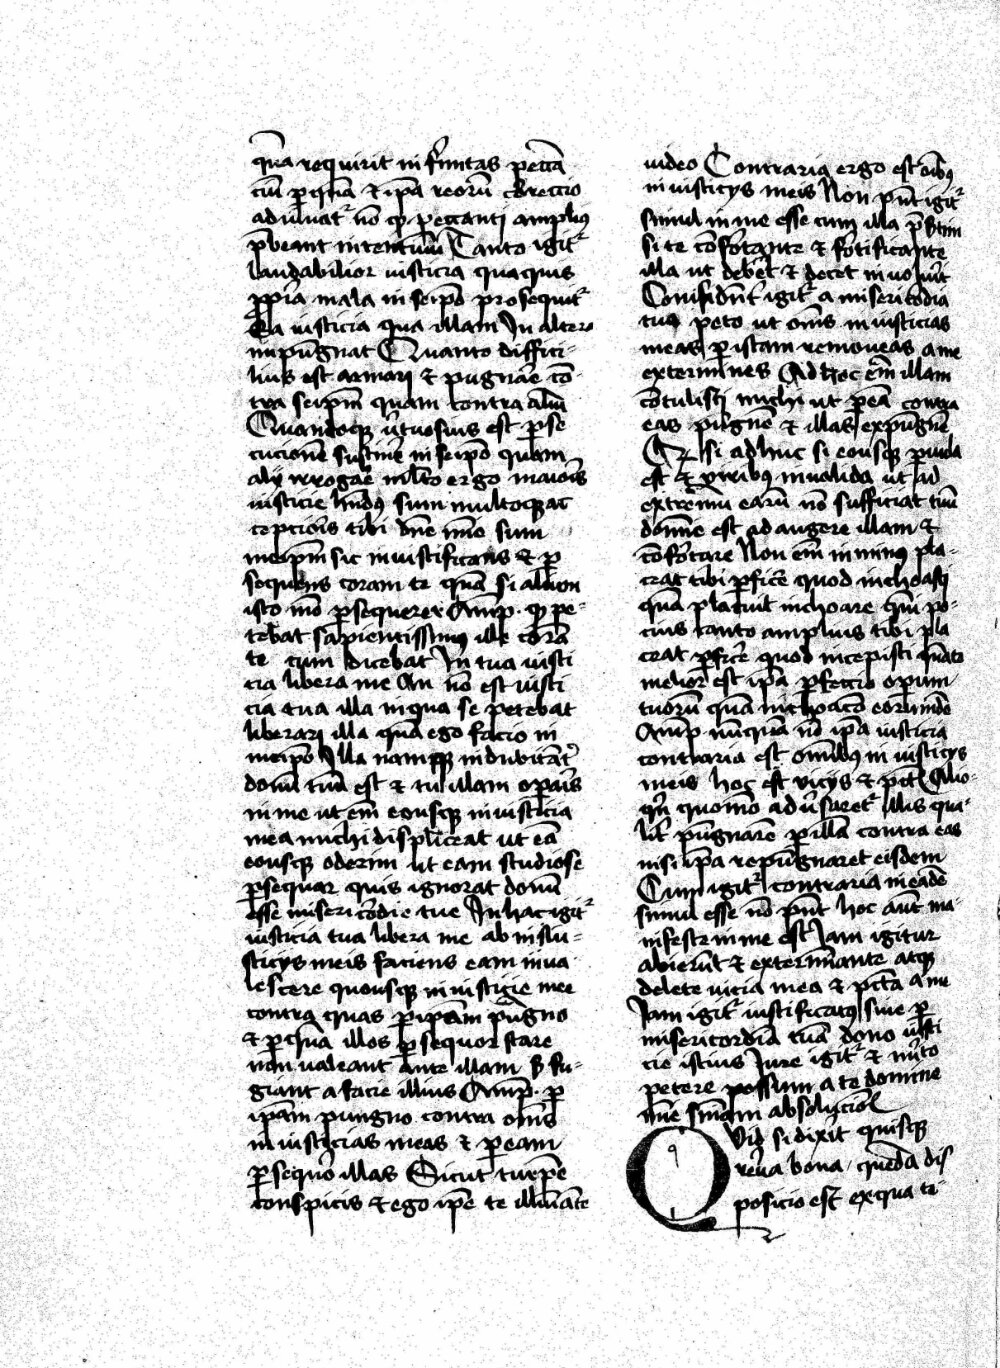 qua̅ requirit in firmitas pecca̅
tiu̅ per qua̅ & ipa̅ reoru̅ correctio
adiuuat᷑ no̅ qꝫ peccanti amplius
p̅beant intentum Tanto igit᷑
laudabilior iusticia quaquis
ꝓpria mala in seipo̅ prosequit᷑
Ea iusticia qua illam In altero
inpu̅gnat Quanto diffici-
lius est armari & pugnare co̅
tra seipm̅ quam contra aliu̅
Quandoqꝫ u̅tuosius est ꝑse
cucione̅ sustine̅ in seipo̅ quam
alij irrogare m̅lto ergo maioris
iusticie sum multoqꝫ ac
ceptioris tibi dn̅e si̅ sum
meipm̅ sic iniustificans & ꝑ
sequens coram te qua̅ si alium
isto mo̅ ꝑsequerer Amp. qꝫ pe-
tebat sapientissimus ille cora̅
te cum dicebat In tua iusti
cia libera me An no̅ est iusti
cia tua illa in qua se petebat
liberari illa qua̅ ego facio in
meipo̅ Illa namqꝫ indubitan̅t᷑
donu̅ tuu̅ est & tu illam oparis
in me ut em̅ eousqꝫ iniusticia
mea michi displiceat ut ea̅
eousqꝫ oderim ut eam studiose
ꝑsequar quis ignorat donu̅
esse misericordie tue In hac igit᷑
iusticia tua libera me ab iniu-
sticijs meis faciens eam inua
lescere quousqꝫ iniusticie mee
contra quas ꝑ ipsam pu̅gno
& ꝑ qua̅ illas ꝑsequor stare
non ualeant ante illam sꝫ fu-
giant a facie illius Amp. ꝑ
ipam pungno contra om̅s
iniusticias meas & ꝑ eam
ꝑsequor illas Sicut turpe̅
conspicis & ego ipe te illu̅ia̅te
uideo Contraria ergo est oi̅bꝫ
iniusticijs meis Non pn̅t igit᷑
simul in me esse cum illa p̅s̅tim
si te co̅fortante & fortificante
illa ut debet & decet inuo
Confident̅ igit᷑ a misericordia
tua peto ut om̅s iniusticias
meas ꝑ istam remoueas a me
extermines Ad hoc em̅ illam
co̅tulisti michi ut ꝑ ea̅ contra
eas pu̅gne̅ & illas expu̅gne̅
Qꝛ si adhuc si eousqꝫ puula
est & uiribꝫ inualida ut ad
extremu̅ earu̅ no̅ sufficiat tuu̅
domine est adaugere illam &
co̅fortare Non em̅ in minꝫ pla-
ceat tibi ꝑfic̅e quod inchoasti
qua̅ placuit inchoare po-
cius tanto amplius tibi pla
ceat ꝑfic̅e quod incepisti qua̅to
melior est ipa ꝑfectio operum
tuoru̅ qua̅ inchoac̅o eoru̅mde̅
Amp. nu̅qua̅ no̅ ipa iusticia
contraria est omnibus iniusticijs
meis hoc est vicijs & pcc̅ Alio-
qn̅ quomo̅ adu̅saret᷑ illis qua-
lit̅ pu̅gnare ꝑ illa̅ contra eas
nisi ipa repu̅gnaret eisdem
Cum igit᷑ contraria in eade̅
simul esse no̅ pn̅t hoc aut̅ ma-
nifeste in me est Iam igitur
abieru̅t & exterminante atqꝫ
delete uicia mea & pcc̅a a me
Iam igit᷑ iustificatꝫ sine ꝑ
misericordia̅ tua̅ dono iusti
cie istius Iure igit᷑ & m̅ito
petere possum a te domine
sniam absolucio̅is
Quid si dixit quisqꝫ
reu̅a bona queda̅ dis
posicio est exqua ti